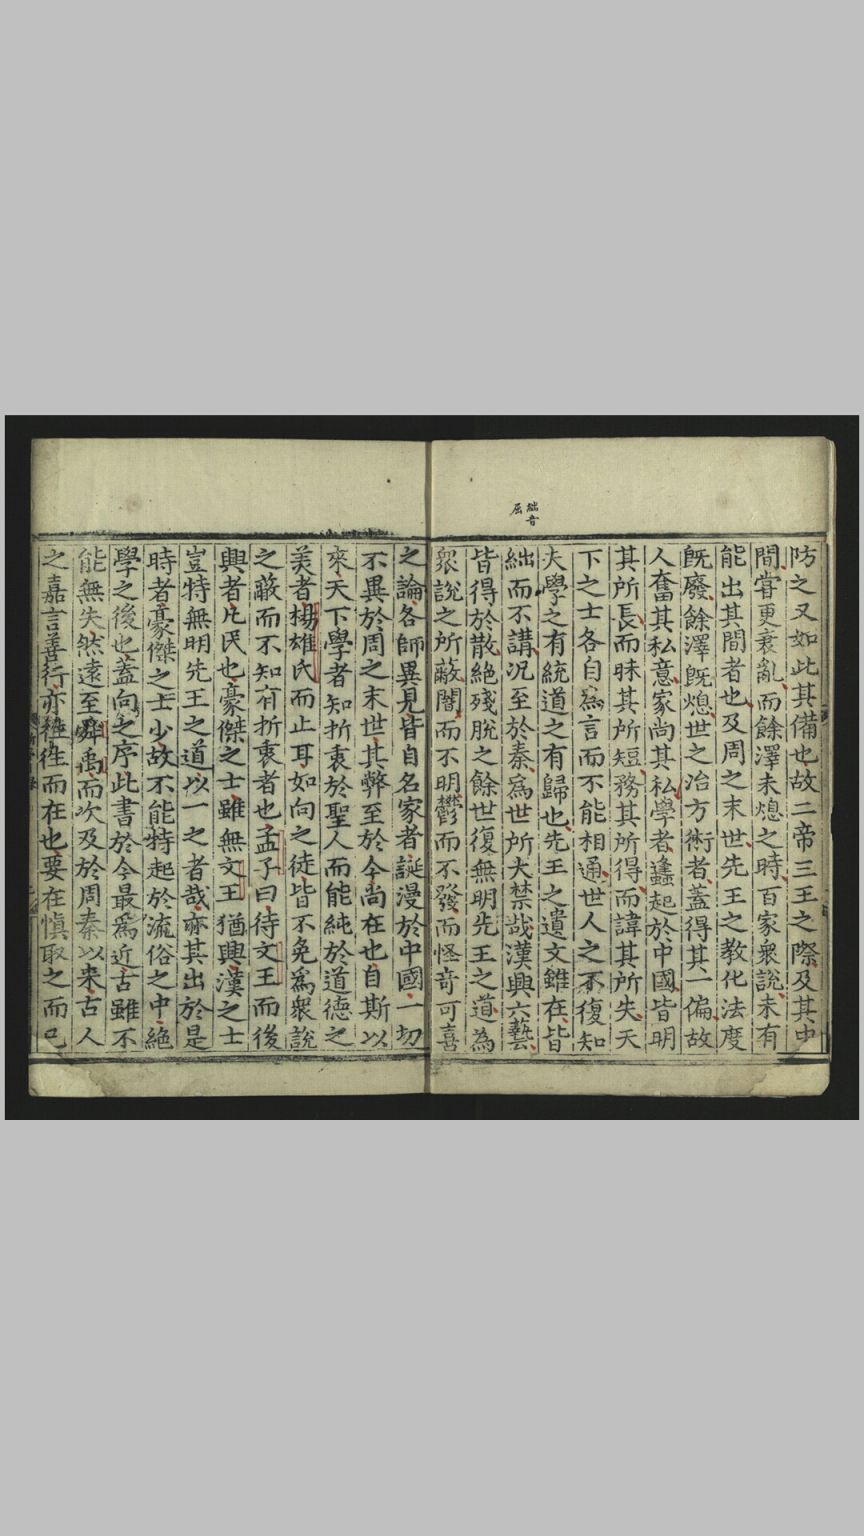 絀音
屈
防之又如此其備也故二帝三王之際及其中
間甞更衰亂而餘澤未熄之時百家衆說未有
能出其間者也及周之末世先王之教化法度
旣廢餘澤旣熄世之治方術者蓋得其一偏故
人奮其私意家尚其私學者蠭起於中國皆明
其所長而昧其所短務其所得而諱其所失天
下之士各自爲言而不能相通世人之不復知
夫學之有統道之有歸也先王之遺文雖在皆
絀而不講況至於秦爲世所大禁哉漢興六藝
皆得於散絕殘脫之餘世復無明先王之道為
衆說之所蔽闇而不明鬱而不發而怪奇可喜
之論各師異見皆自名家者誕漫於中國一切
不異於周之末世其弊至於今尚在也自斯以
來天下學者知折衷於聖人而能純於道德之
美者楊雄氏而止耳如向之徒皆不免爲衆說
之蔽而不知有折衷者也孟子曰待文王而後
興者凡民也豪傑之士雖無文王猶興漢之士
豈特無明先王之道以一之者哉亦其出於是
時者豪傑之士少故不能特起於流俗之中絕
學之後也蓋向之序此書於今最爲近古雖不
能無失然遠至舜禹而次及於周秦以来古人
之嘉言善行亦徃徃而在也要在慎取之而已